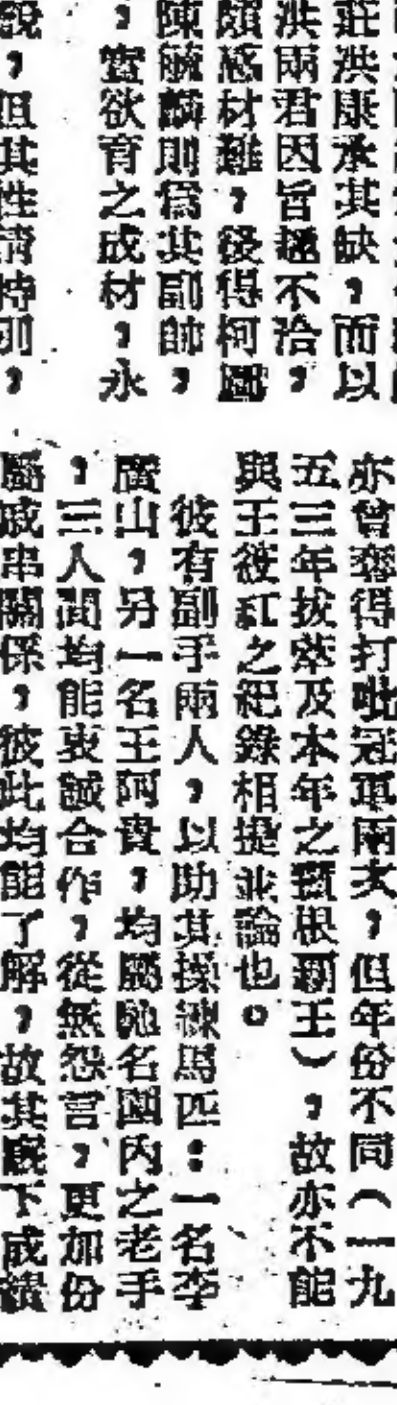 莊洪康承其缺，而以
洪兩君因旨趣不洽，
頗感材難，後得柯
陳毓麟則爲其副帥，
，實欲育之成材，永
說，但其性情特別，
亦曾奪得打吡冠軍兩次，但年份不同（一九
五三年拔萃及本年之覇王），故亦不能
與王從紅之紀錄相提並論也。
彼有副手兩人，以助其操練馬匹：一名李
廣山，另一名王阿貴，均屬馳名國內之老手
，三人間均能衷誠合作，從無怨言，更加份
屬戚串關係，彼此均能了解，故其廐下成績